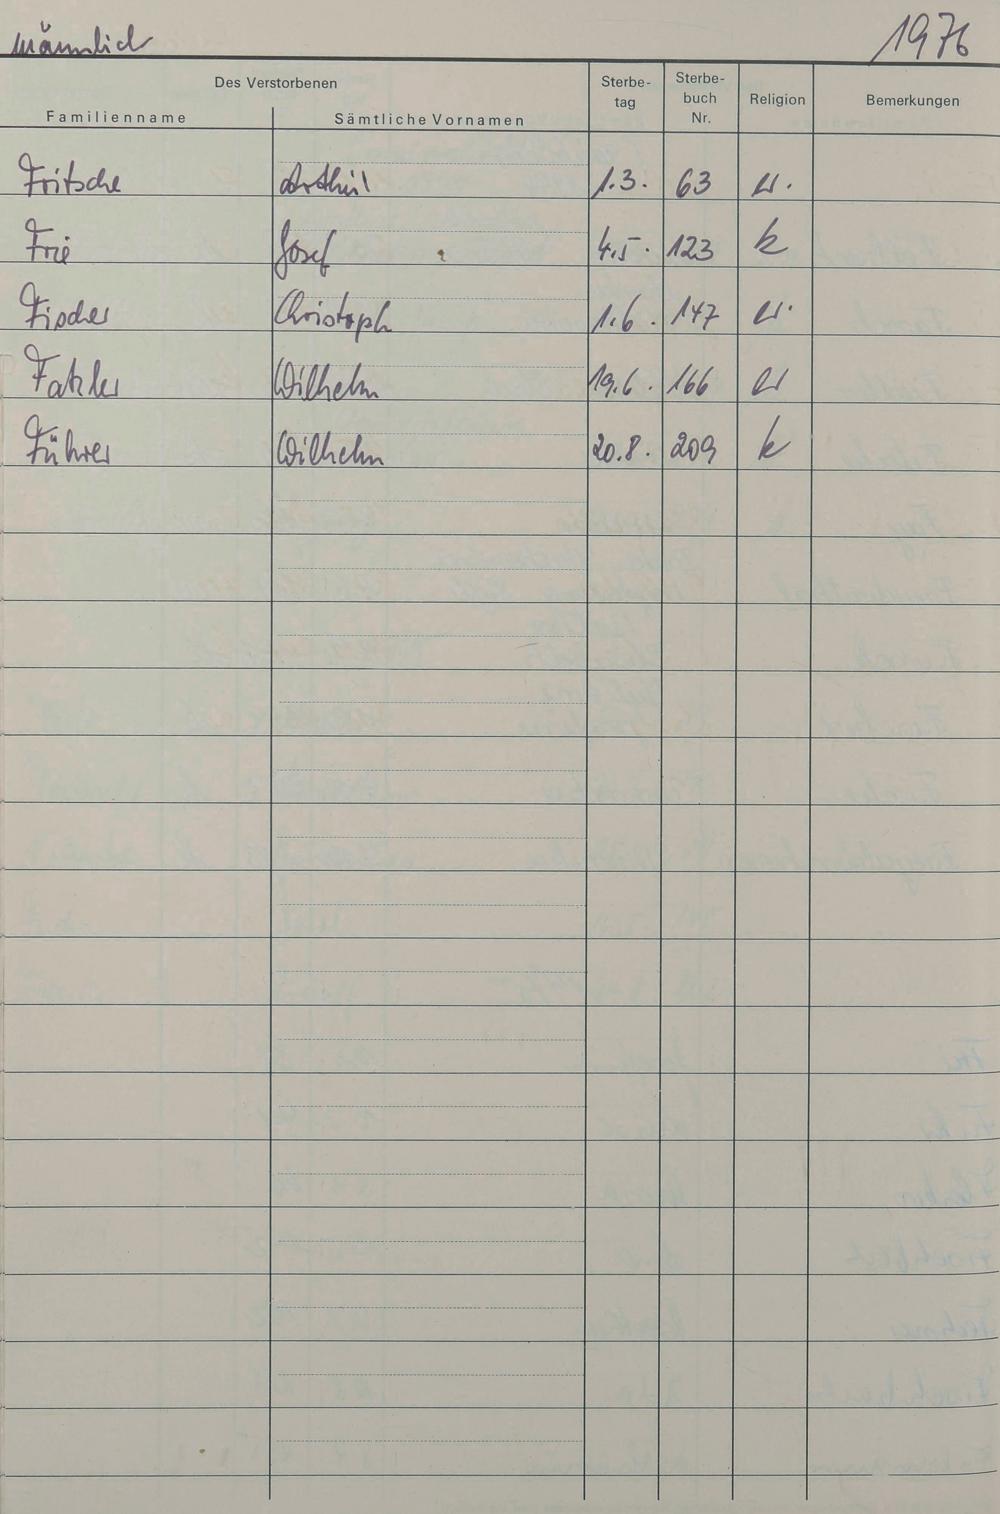 männlich 1976
Des Verstorbenen Sterbe- Sterbe-
tag buch Religion Bemerkungen
Familienname Sämtliche Vornamen Nr.
Fritsche Arthur 1.3. 63 ev.
Frie Josef 4.5. 123 k
Fischer Christoph 1.6. 147 ev.
Wilhelm 19.6. 166 ev
Führer Wilhelm 20.8. 209 k